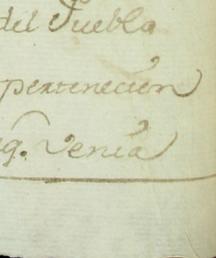 del Pueblo
pertenecien
q. venia